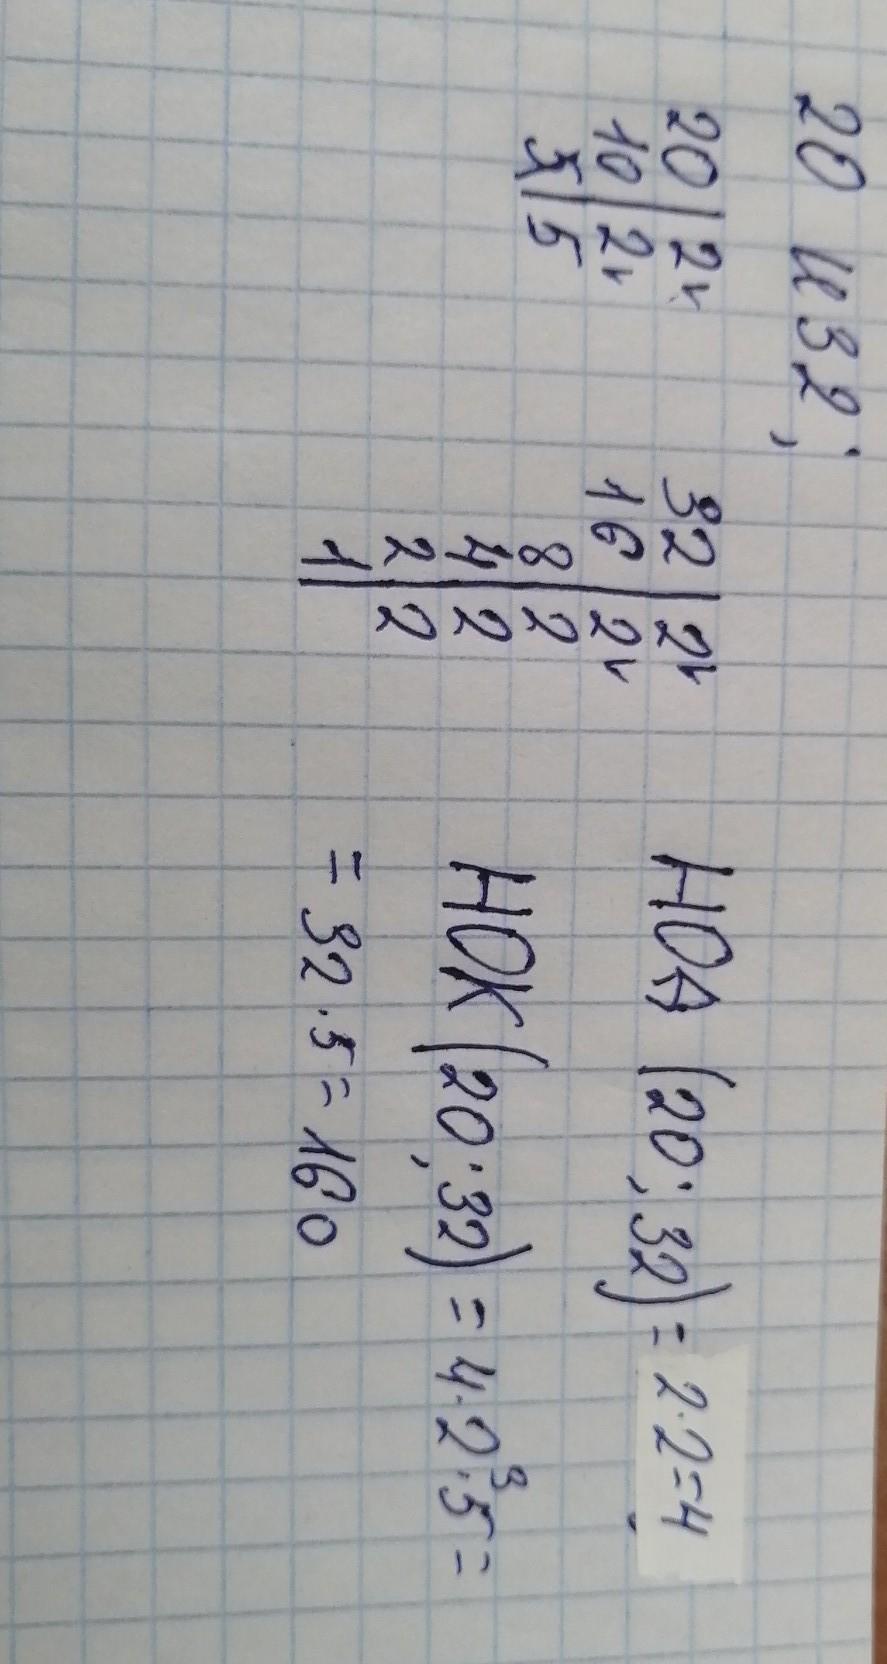 20 и 32;
20 | 2v
10 | 2v
5 | 5
32 | 2v
16 | 2v
8 | 2
4 | 2
2 | 2
1 |
НОД (20; 32) = 2·2=4
НОК (20; 32) = 4·2³·5=
= 32·5=160